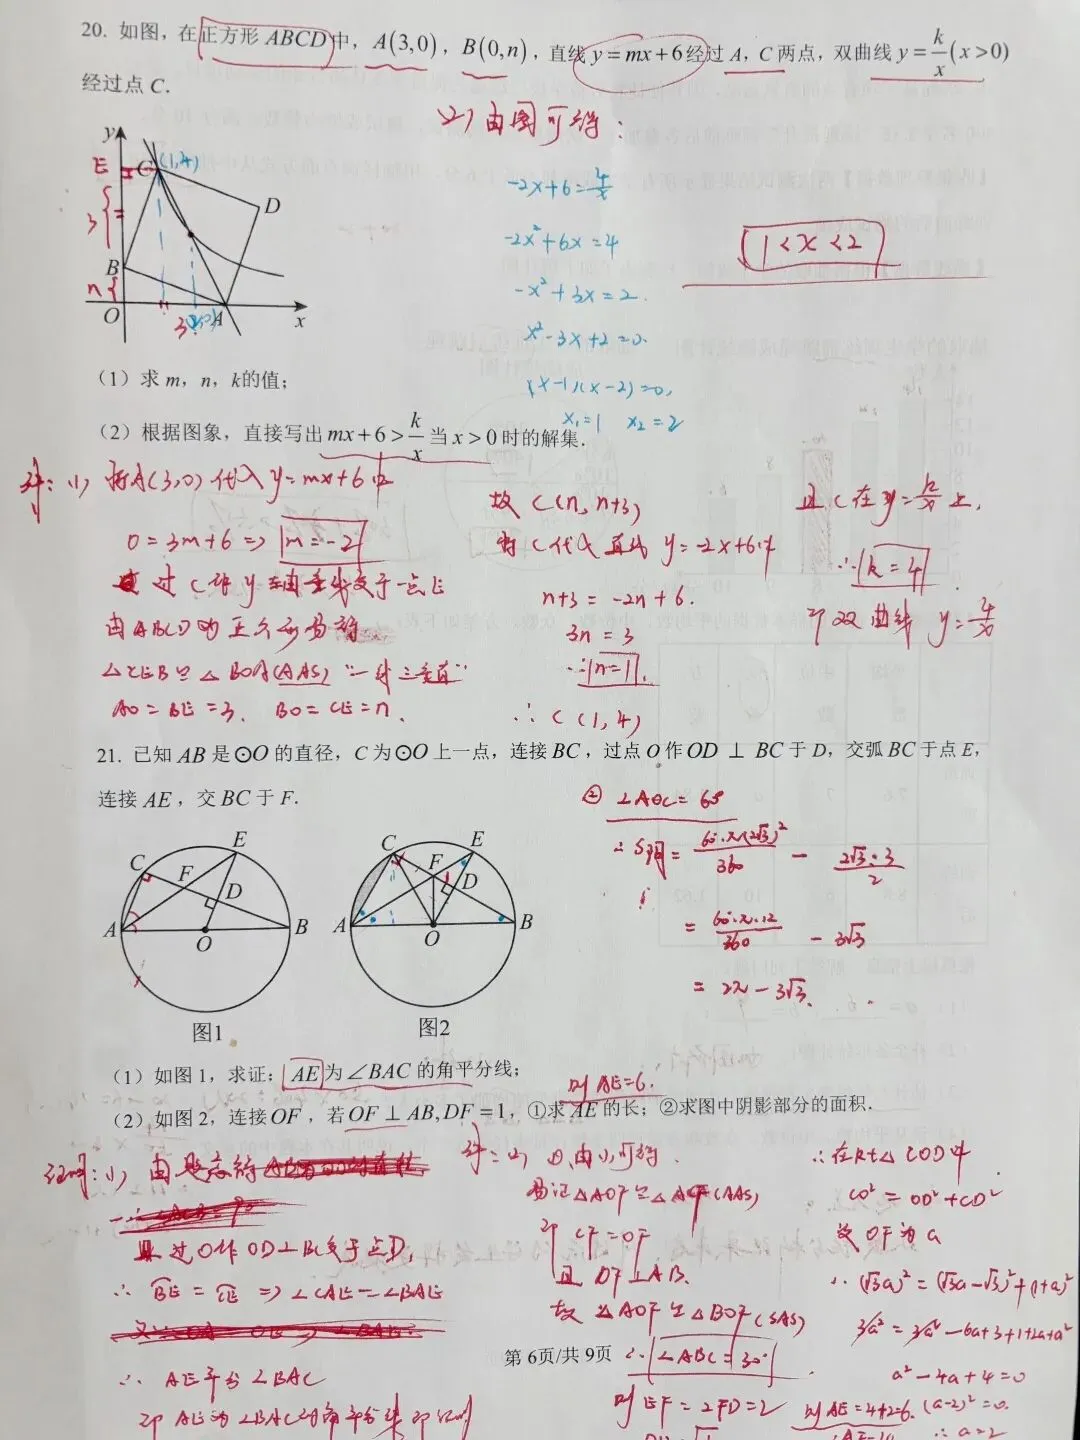 20. 如图，在正方形ABCD中，A(3,0)，B(0,n)，直线y=mx+6经过A，C两点，双曲线y=k/x(x>0)
经过点C.
(2) 由图可得：
y
E
C
(1,4)
3
D
B
n
O
3
A
x
-2x+6=4/x
-2x²+6x=4
-x²+3x=2.
x²-3x+2=0.
(x-1)(x-2)=0,
x₁=1 x₂=2
1<x<2
（1）求m，n，k的值；
（2）根据图象，直接写出mx+6>k/x当x>0时的解集.
解：(1) 将A(3,0)代入y=mx+6中
0=3m+6 => m=-2
过C作y轴垂线交于一点E
由ABCD为正方形易得
△CEB≌△BOA(AAS) "一线三垂直"
AO=BE=3, BO=CE=n,
故C(n,n+3)
将C代入直线y=-2x+6中
n+3=-2n+6.
3n=3
∴n=1.
∴C(1,4)
且C在y=k/x上,
∴k=4.
即双曲线y=4/x
21. 已知AB是⊙O的直径，C为⊙O上一点，连接BC，过点O作OD⊥BC于D，交弧BC于点E，
连接AE，交BC于F.
C
E
F
D
A
O
B
图1
C
E
F
D
A
O
B
图2
② ∠AOC=60°
∴S阴=60·π·(2√3)²/360 - 2√3·3/2
=60·π·12/360 - 3√3
=2π-3√3.
（1）如图1，求证：AE为∠BAC的角平分线；
则AE=6.
（2）如图2，连接OF，若OF⊥AB,DF=1，①求AE的长；②求图中阴影部分的面积.
证明：(1) 由题意得
且过O作OD⊥BC交于点D,
∴BE=CE => ∠CAE=∠BAE
∴AE平分∠BAC
即AE为∠BAC的角平分线即证明
解：(2) ①由(1)可得.
易证△AOF≌△ACF(AAS)
即CF=OF
且OF⊥AB.
故△AOF≌△BOF(SAS)
∴∠ABC=30°
则EF=2FD=2
∴在Rt△COD中
CO²=OD²+CD²
设OF为a
∴(√3a)²=(√3a-√3)²+(1+a)²
3a²=3a²-6a+3+1+2a+a²
a²-4a+4=0
(a-2)²=0.
∴a=2
则AE=4+2=6.
第6页/共9页